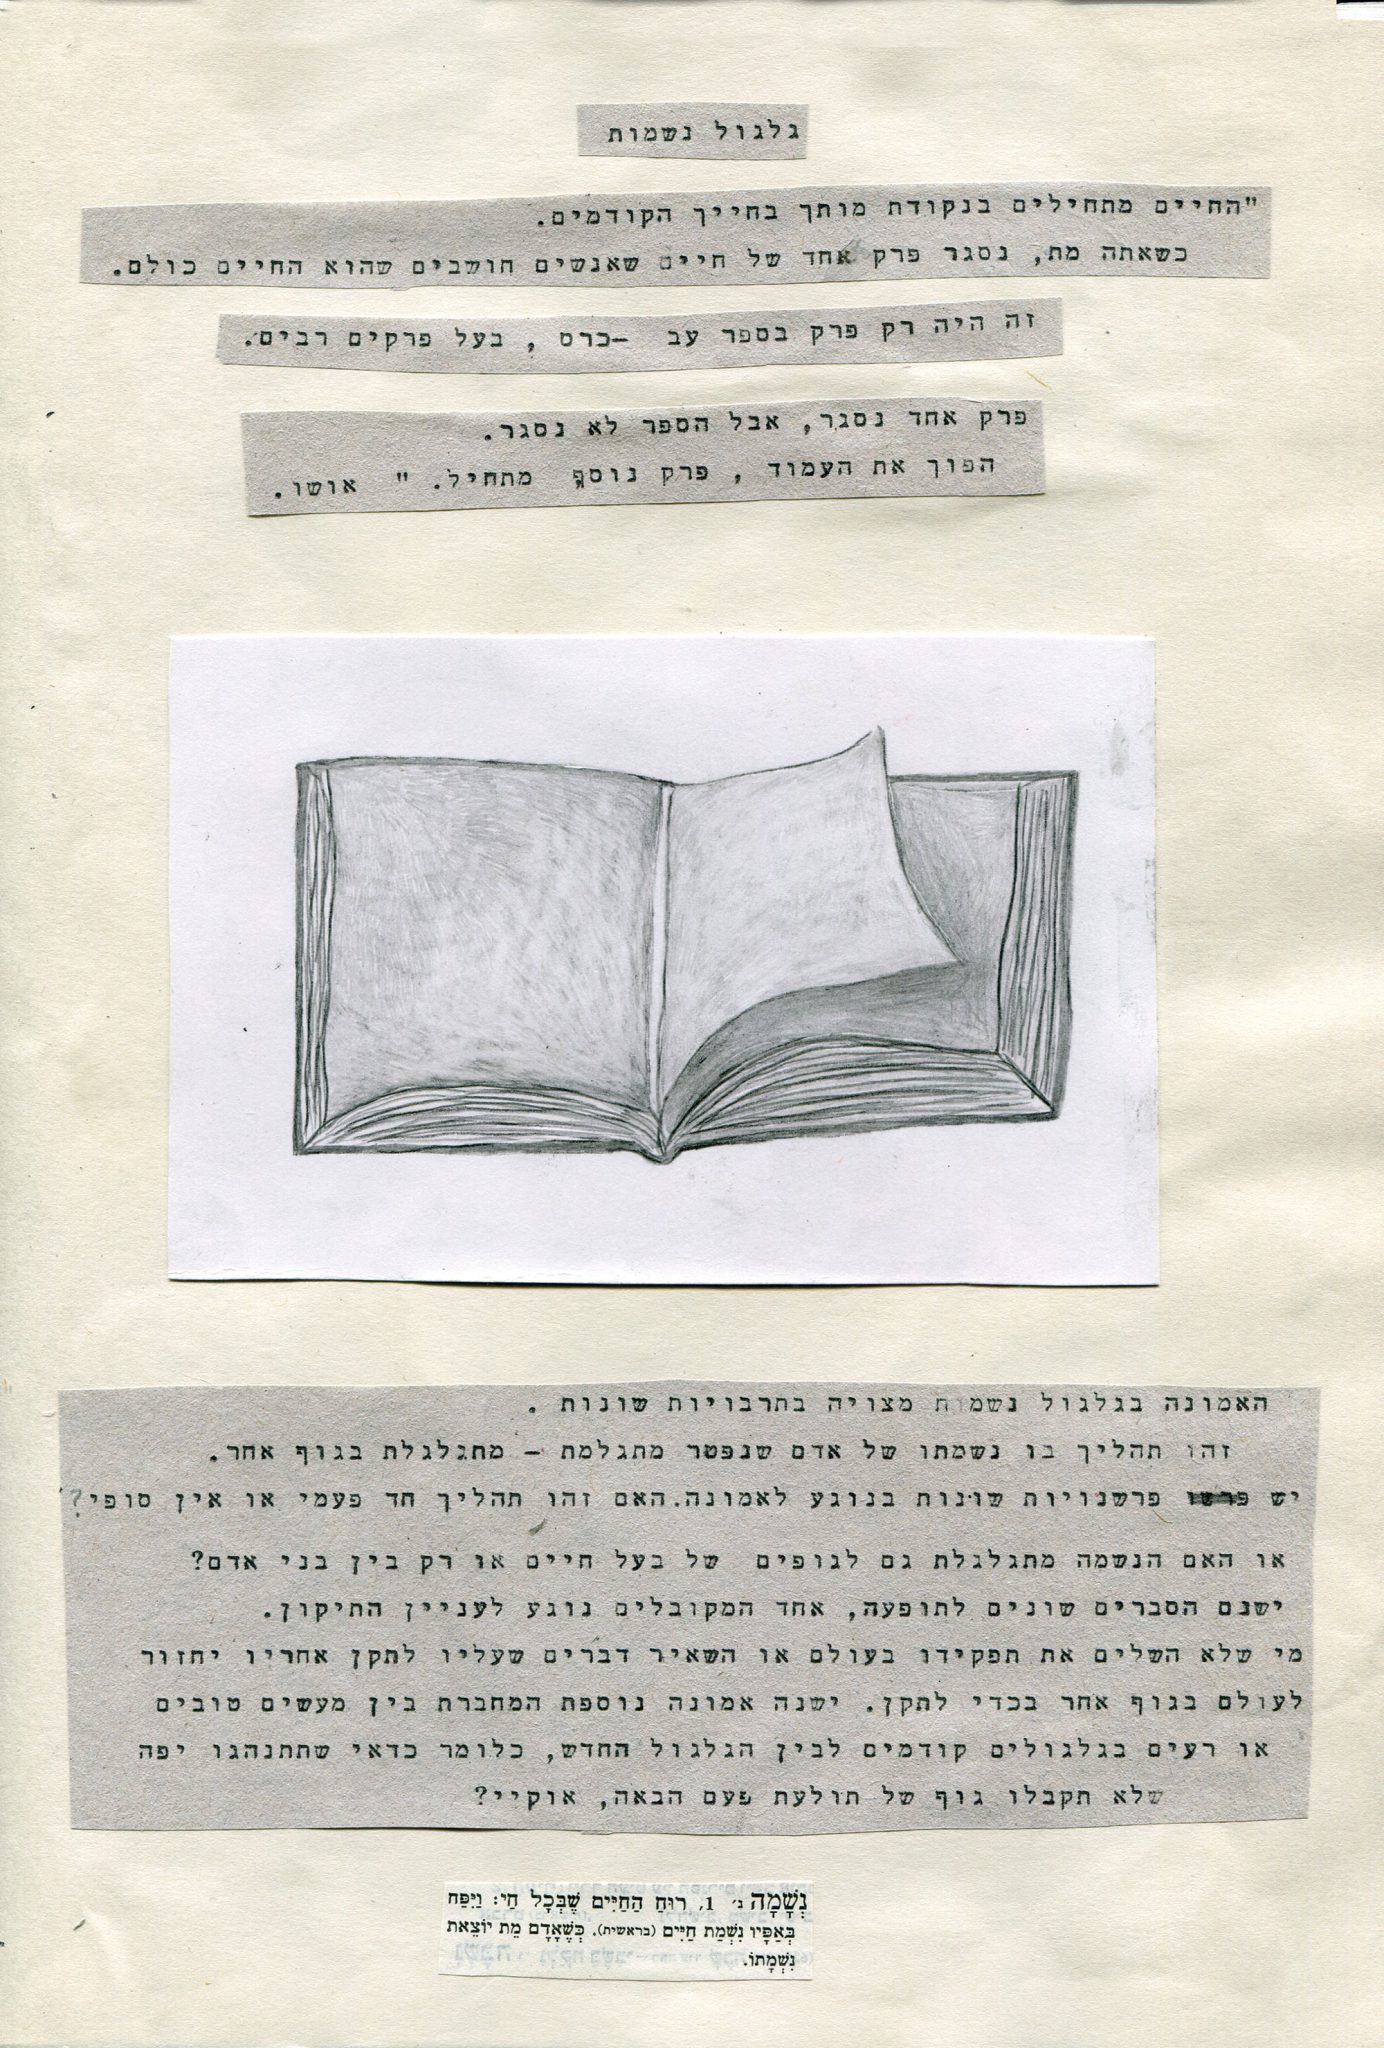 גלגול נשמות
"החיים מתחילים בנקודת מותך בחייך הקודמים.
כשאתה מת, נסגר פרק אחד של חיים שאנשים חושבים שהוא החיים כולם.
זה היה רק פרק בספר עב -כרס , בעל פרקים רבים.
פרק אחד נסגר, אבל הספר לא נסגר.
הפוך את העמוד , פרק נוסף מתחיל. " אושו.
האמונה בגלגול נשמות מצויה בתרבויות שונות .
זהו תהליך בו נשמתו של אדם שנפטר מתגלמת - מתגלגלת בגוף אחר.
יש פרשנויות שונות בנוגע לאמונה.האם זהו תהליך חד פעמי או אין סופי?
או האם הנשמה מתגלגלת גם לגופים של בעל חיים או רק בין בני אדם?
ישנם הסברים שונים לתופעה, אחד המקובלים נוגע לעניין התיקון.
מי שלא השלים את תפקידו בעולם או השאיר דברים שעליו לתקן אחריו יחזור
לעולם בגוף אחר בכדי לתקן. ישנה אמונה נוספת המחברת בין מעשים טובים
או רעים בגלגולים קודמים לבין הגלגול החדש, כלומר כדאי שתתנהגו יפה
שלא תקבלו גוף של תולעת פעם הבאה, אוקיי?
נְשָׁמָה נ' 1. רוּחַ הַחַיִּים שֶׁבְּכָל חַי: וַיִּפַּח
בְּאַפָּיו נִשְׁמַת חַיִּים (בראשית). כְּשֶׁאָדָם מֵת יוֹצֵאת
נִשְׁמָתוֹ.